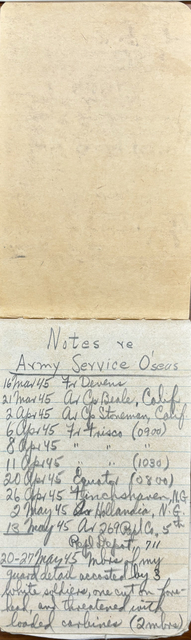 Notes re
Army Service O'seas
16 Mar 45 Fr Devens
21 Mar 45 Ar Cp Beale, Calif
2 Apr 45 Ar Cp Stoneman, Calif
6 Apr 45 Fr Frisco (0900)
8 Apr 45 " " "
11 Apr 45 " " (1030)
20 Apr 45 Equator (0800)
26 Apr 45 Finchshaven, N.G.
2 May 45 Hollandia, N.G.
13 May 45 Ar 269 Repl Co, 5th
Repl Depot, "
20-27 May 45 Mbrs of my
guard detail accosted by 3
white soldiers, one cut on fore-
head, and threatened with
loaded carbines (2 mbrs)